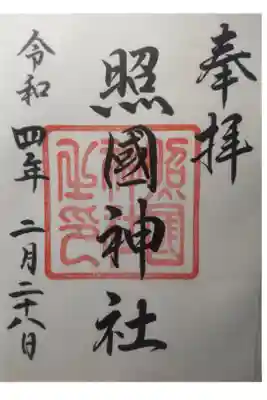 奉拝
照國神社
令和四年二月二十八日